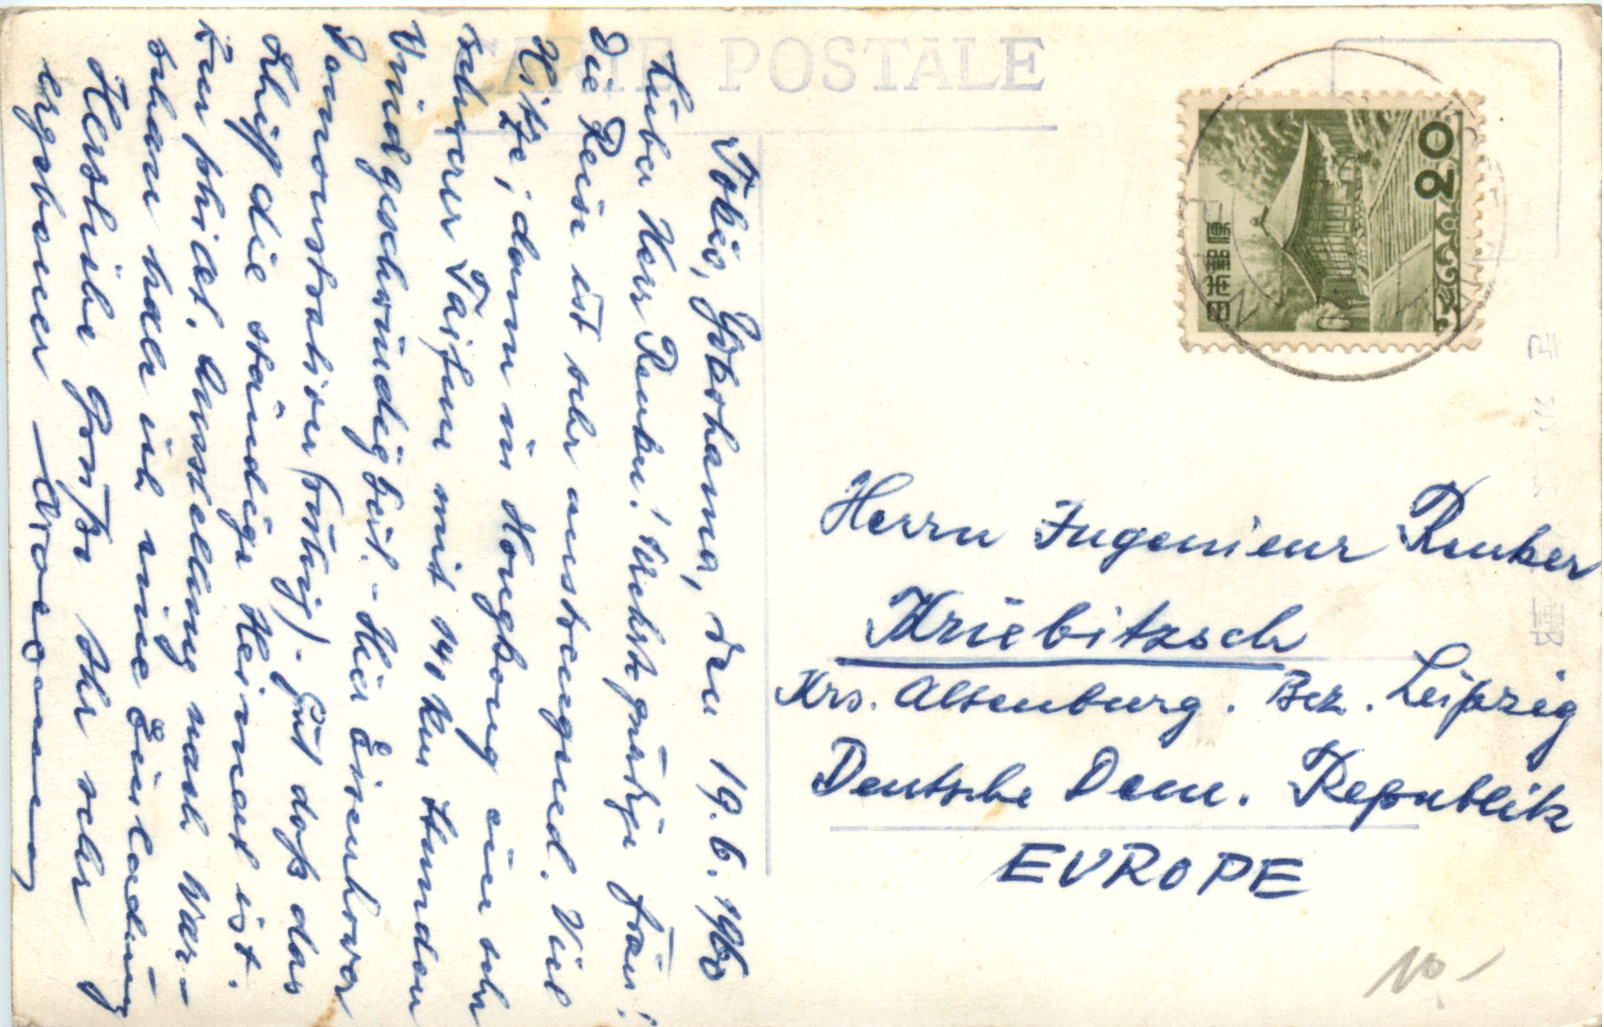 CARTE POSTALE
Tokio, Yokohama, den 19.6.1960
Lieber Herr Reuker! Sehr gnädige Frau!
Die Reise ist sehr anstrengend. Viel
Hitze, dann in Hongkong ein sehr
schwerer Taifun mit 140 km Stunden
Windgeschwindigkeit. - Hier Eisenhower
Demonstrationen
Schiff die ständige Heimat ist.
Ausstellung nach War-
schau habe ich eine Einladung
Herzliche Grüße Ihr sehr
ergebener
日本郵便
20
Herrn Ingenieur Reuker
Kriebitzsch
Krs. Altenburg. Bez. Leipzig
Deutsche Dem. Republik
EUROPE
10.-